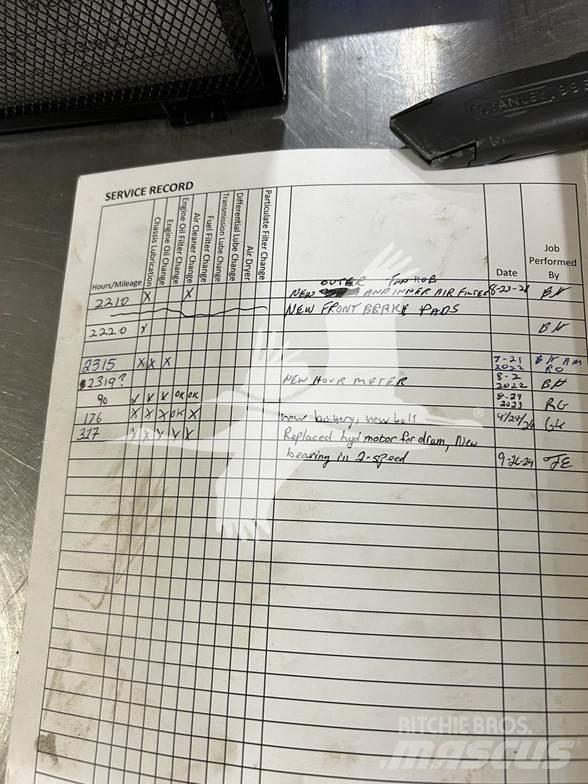 STANLEY
SERVICE RECORD
Hours/Mileage Chassis Lubrication Engine Oil Change Engine Oil Filter Change Air Cleaner Change Fuel Filter Change Transmission Lube Change Differential Lube Change Air Dryer Particulate Filter Change Date Job Performed By
OUTER
2210 X X NEW AND INNER AIR FILTER BH
NEW FRONT BRAKE PADS
2220 X BH
2315 X X X 7-21 2022 BH AM RO
2319? NEW HOUR METER 8-2 2022 BH
90 X X X OK OK 8-29 2023 RG
176 X X X OK X new battery, new belt GK
317 X X X X X Replaced hyd motor for drum, New
bearing in 2-speed 9-26-24 JE
RITCHIE BROS.
MASCUS